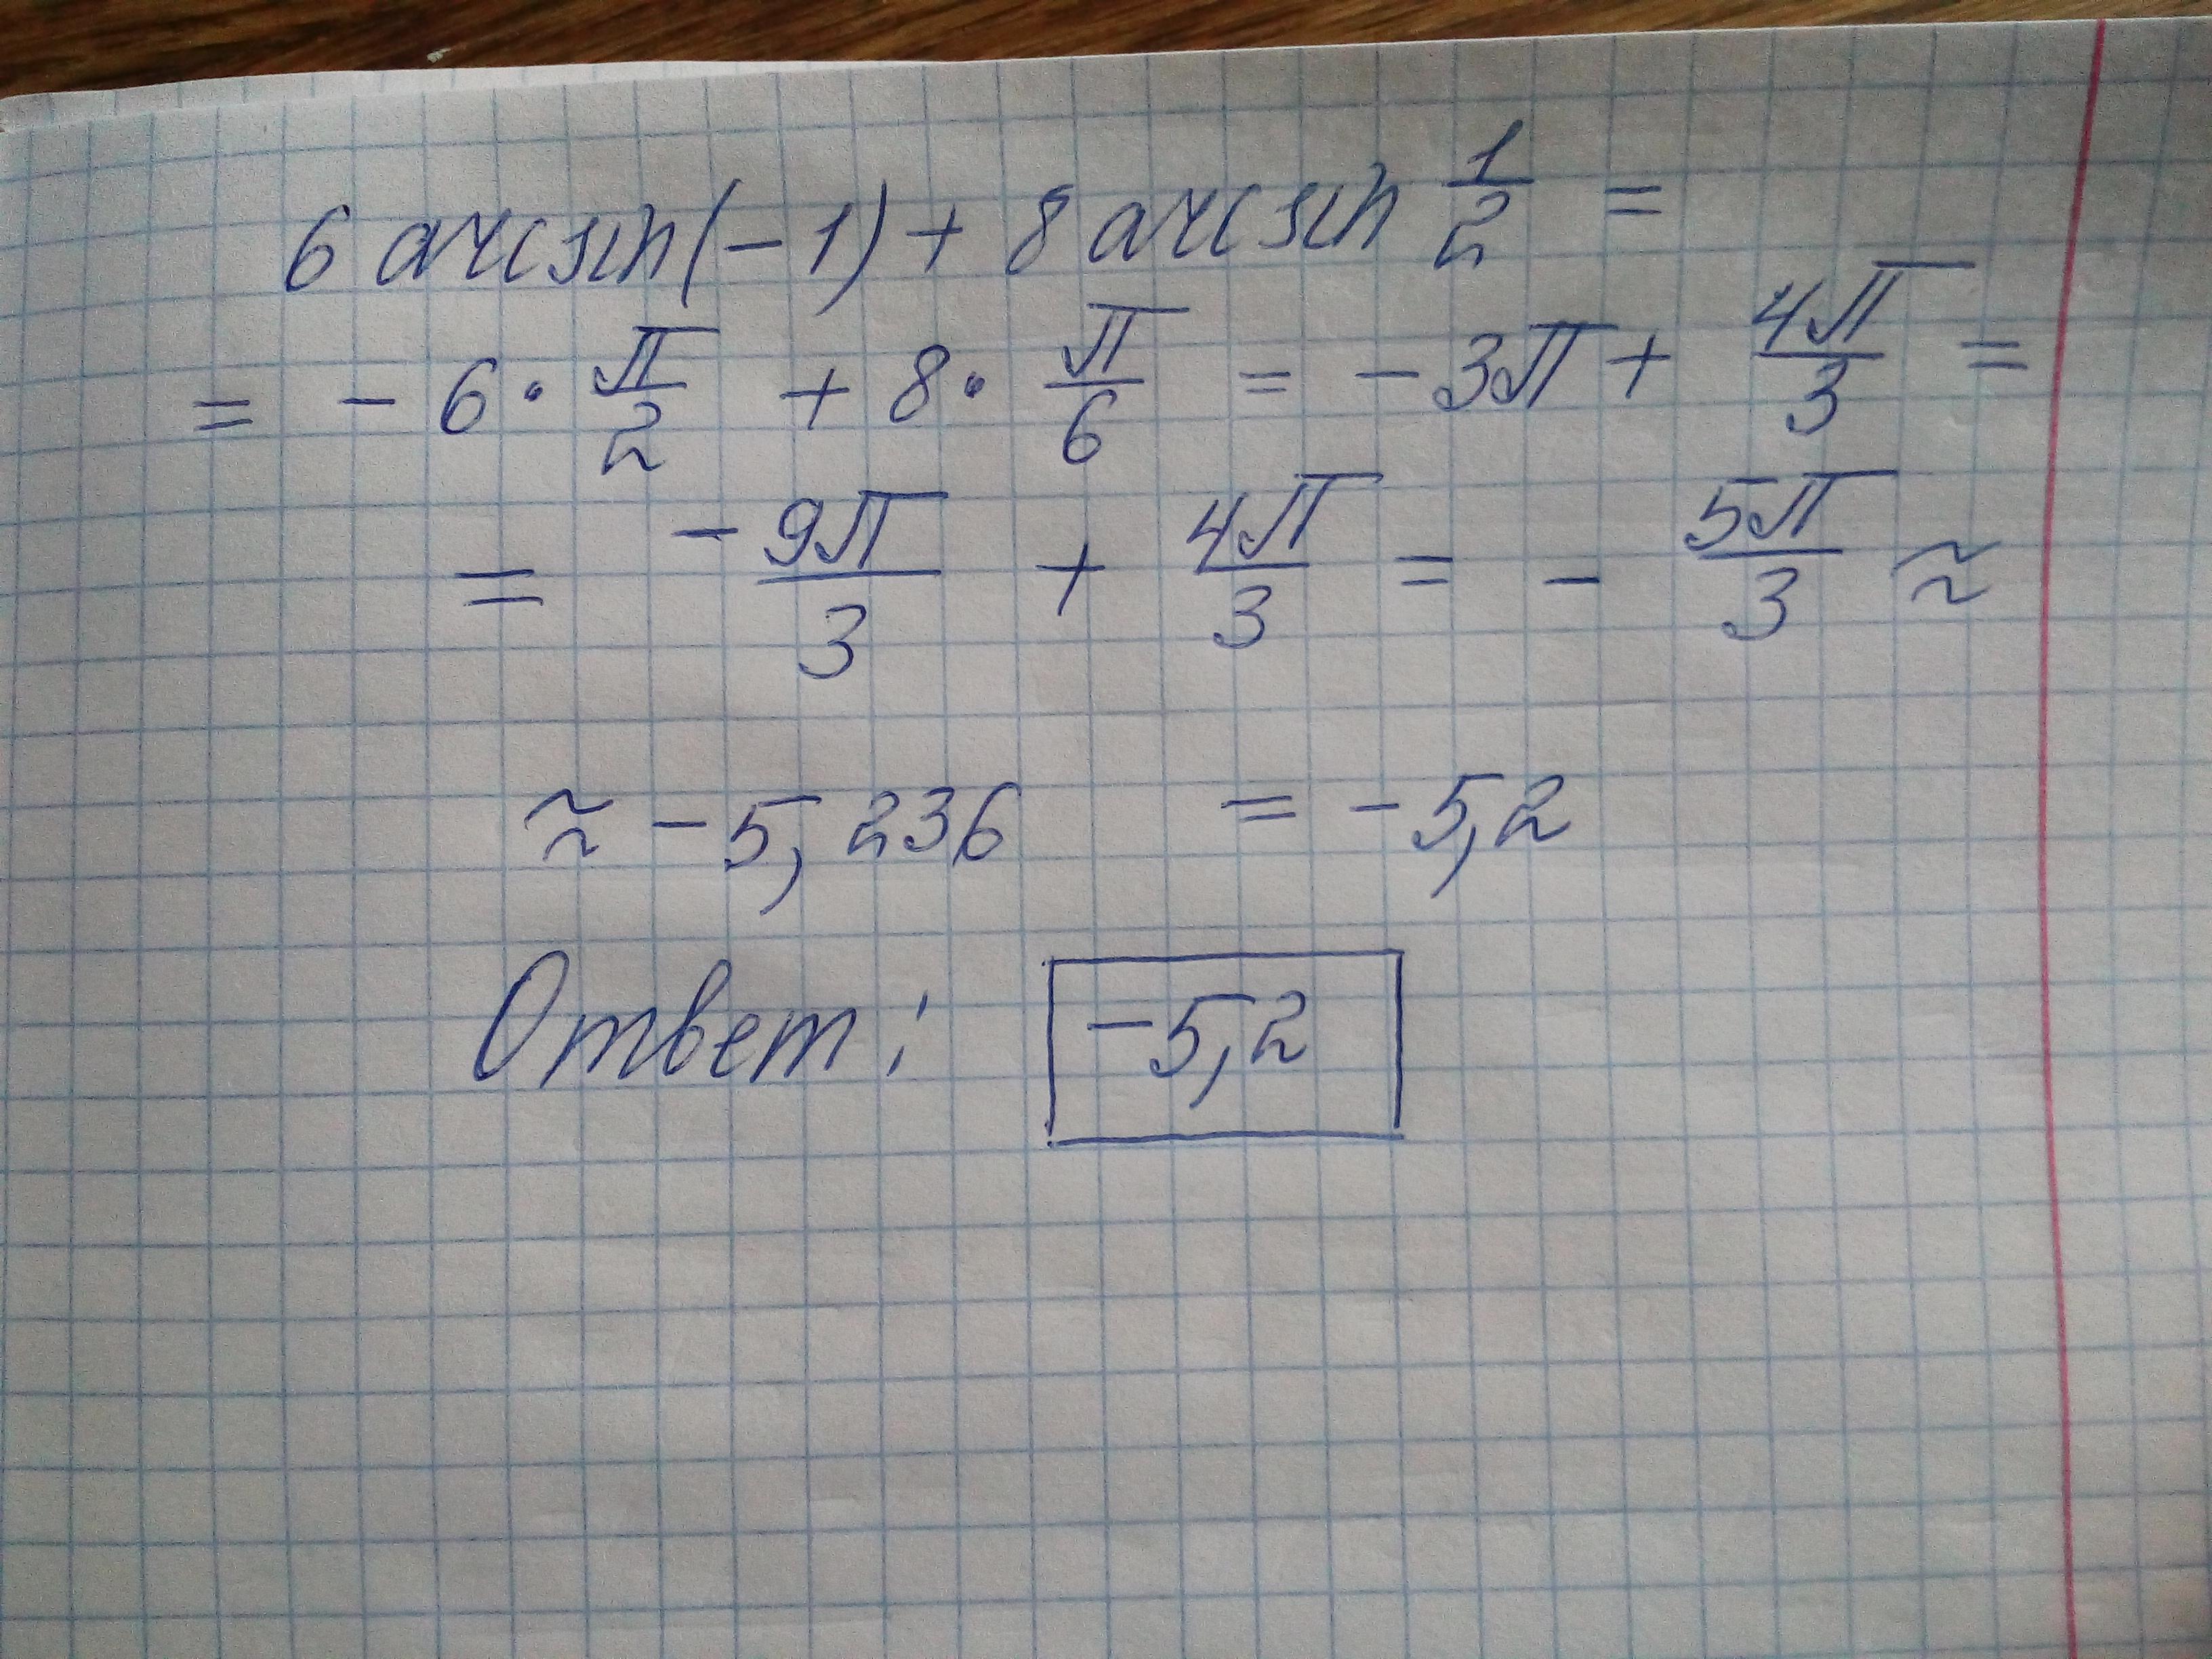 6 arcsin(-1) + 8 arcsin 1/2 =
= - 6 · π/2 + 8 · π/6 = - 3π + 4π/3 =
= -9π/3 + 4π/3 = - 5π/3 ≈
≈ -5,236 = -5,2
Ответ: -5,2